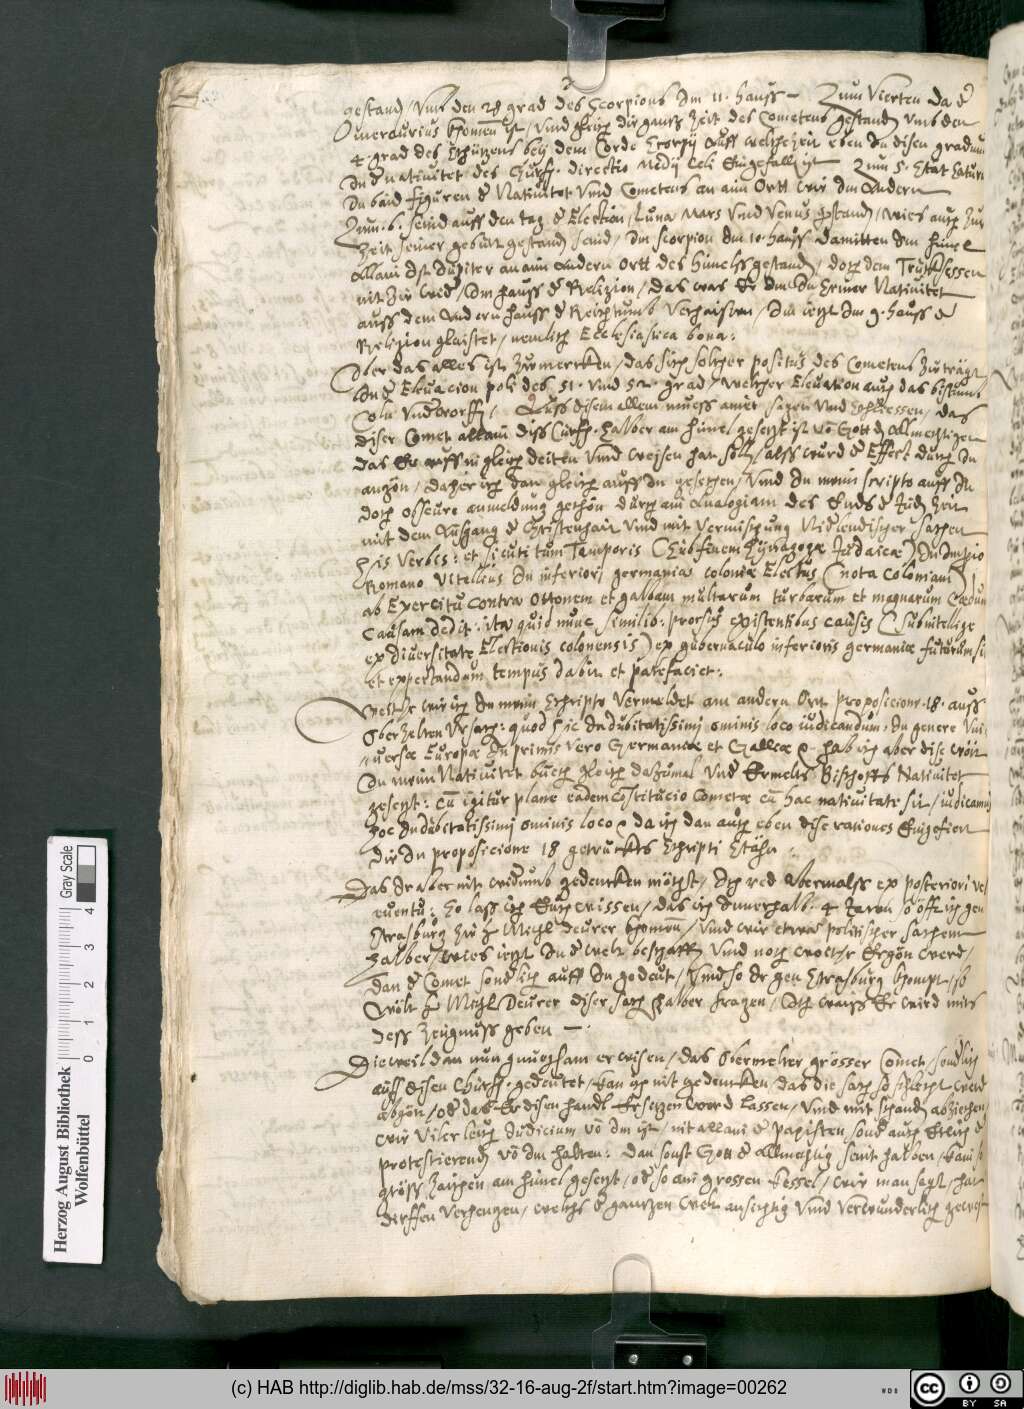 gestand / Vmb den 28 grad des Scorpions Im 11. hauss — Zum Vierten da d
Mercurius khomen ist / vnd gleich die gantz Zeit des Cometens gestand vmb den
4 grad des Schützens beÿ dem Corde Scorpÿ auff welche Zeit eben In disen gradum
In d nativitet des Churf. directio Medÿ Celi Eingefall ist Zum 5. stat Saturn
In baid figuren d Nativitet vnd Cometens an aim Ortt wie Im Andern
Zum .6. seind auff den tag d Election / Luna Mars vnd Venus gstand / wies auch Zur
Zeit seiner geburt gestand seind / Im scorpion Im 10. hauss damitten Im himel
Allain Ist Jupiter an aim andern Ortt des himels gestand / doch dem Truchsessen
nit Zů wid / Im hauss d Religion / das was Er Im In Ferner Nativitet
auss dem Andern hauss d Reichtumb Verhaissen / Im ietzt Im 9. hauss d
Religion glaistet / nemlich Ecclesiastica bona :
Uber das alles ist Zů mercken / das sich solcher positus des Cometens Zů trägt
In d Eleuacion poli des 51. vnd 52. grad / welcher Eleuation auch das bistumb
Cöln Underworffen / Auss disem allem muess ainer sagen vnd schliessen / das
diser Comet allain diss Curf. halber am himel gesetzt ist vō Gott dē Allmechtigen
das Er auff in gleich deiten vnd weisen han soll / alss wurd d Effect durch In
angon / daher ich dan gleich auff In gesehen / vnd In mein scripto auff In
doch obscure anmeldung gethon durch ain Analogiam des Ends d Jud Zeit
mit dem Aussgang d Christenhait vnd mit Vermischung Nidlendischer sachen
his Verbis : et sicuti tum Temporis (sub finem Synagogæ Judaicæ) In Imperio
Romano Vitellius In inferiori germania coloniæ Electus (nota Coloniam)
ab Exercitu contra Ottonem et galbam multarum turbarum et magnarum Cædium
Causam dedit : ita quid nunc similib : prorsus existentibus causis (subintellige
ex diuersitate Electionis colonensis) ex gubernaculo inferioris germaniæ futurum sit
et expectandum tempus dabit et patefaciet :
Welche wie ich In mein Schripto Vermeldet am andern Ort proposicione .18. auss
Oberzelten Ursach : quod hic Indubitatissimi ominis loco iudicandum : In genere Vni-
uersæ Europæ In primis vero Germaniæ et Galliæ &c. hab ich aber dise wort
In mein Nativitet buech gleich dazumal vnd Ermelts Bischoffs Nativitet
gesetzt : cū igitur plane eadem Cōstitucio Cometæ cū hac nativitate sit / iudicamus
hoc Indubitatissimi ominis loco &c. da ich dan auch eben dise rationes Eingefiert
die In proposicione 18 getruckts Schripti stehn
Das Ir aber nit widrumb gedencken möchst / Ich red abermalss ex posteriori vel
euentu : so lass ich Euch wissen / das ich Innerhalb .4 Jaren so offt ich gen
Strasburg zů H Michl Deurer khomen / vnd wir etwas politischer sachen
halber / wies ietzt In d welt beschaffen vnd noch welche Ergon werd /
dan d Comet sondlich auff In gedeut / vnd so Ir gen Strasburg khompt / ob
wölt H Michl Deurer diser sach halber fragen / Ich waiss Er wird mirs
dess Zeugnuss geben — :
Dieweil dan nun gnuegsam erwisen / das obermelter grosser Comet / sondlich
auff disen Churf. gedeutet / kan ich nit gedencken / das die sach so schlecht werd
abgon / od das Er disen handl Ersetzen werd lassen / vnd mit schand abziehen
wie Viler leuth Judicium vō Im ist / nit allain d papisten sond auch Etlich d
protestierend vō Im halten : dan sonst Gott d Allmechtig seint halben / kain so
gross Zaichen am himel gesetzt / od so ain grossen kessel / wie man sagt / hat
derffen Verhengen / welchs d gantzen welt ansichtig vnd Verwunderlich gewest
Gray Scale
4
3
2
1
0
Herzog August Bibliothek
Wolfenbüttel
(c) HAB http://diglib.hab.de/mss/32-16-aug-2f/start.htm?image=00262
WDB
CC BY SA